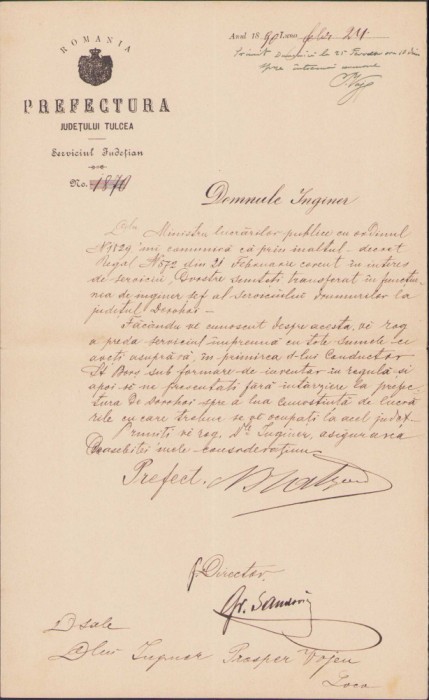 ROMANIA
PREFECTURA
JUDEȚULUI TULCEA
Serviciul Județian
No. 1870
Anul 1890 Luna Febr. 24
Primit la 25
spre
Domnule Inginer
D-lu Ministru lucrărilor publice cu ordinul
No 1829 'mi comunică că prin inaltul decret
Regal No 572 din 21 Februarie corent în interes
de serviciu, Dvostre sunteti transferat în functiu-
nea de inginer șef al Serviciului drumurilor la
județul Dorohoi –
Făcêndu ve cunoscut despre acesta, ve rog
a preda serviciul împreună cu tote sumele ce
aveți asupră vă, în primirea d-lui Conductor
St. sub formare de inventar în regulă si
apoi să ve presentati fără intârziere la prefec-
tura de Dorohoi spre a lua cunostință de lucră-
rile cu care trebue se ve ocupați la acel județ.
Primiți ve rog, D-le Inginer, asigurarea
Deosebitei mele consideratiuni
Prefect.
p. Director,
Gr.
D sale
D lui Inginer Prosper
Loco